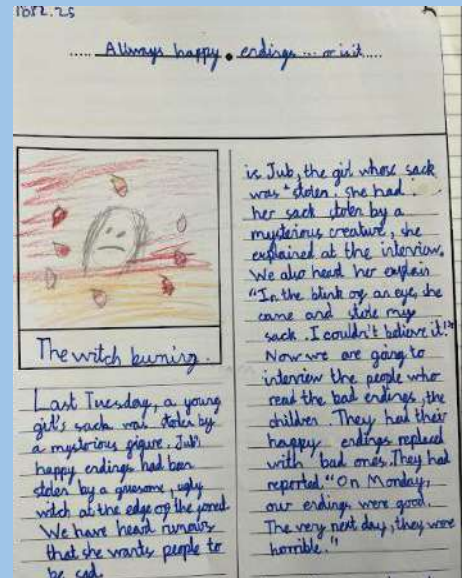 ..... Always happy endings ... or is it .....
The witch burning.
Last Tuesday, a young
girl's sack was stolen by
a mysterious figure. Jub's
happy endings had been
stolen by a gruesome, ugly
witch at the edge of the forest.
We have heard rumours
that she wants people to
be sad.
is Jub, the girl whose sack
was stolen. She had
her sack stolen by a
mysterious creature, she
explained at the interview.
We also heard her explain
"In the blink of an eye, she
came and stole my
sack. I couldn't believe it!"
Now we are going to
interview the people who
read the bad endings, the
children. They had their
happy endings replaced
with bad ones. They had
reported. "On Monday,
our endings were good.
The very next day, they were
horrible."